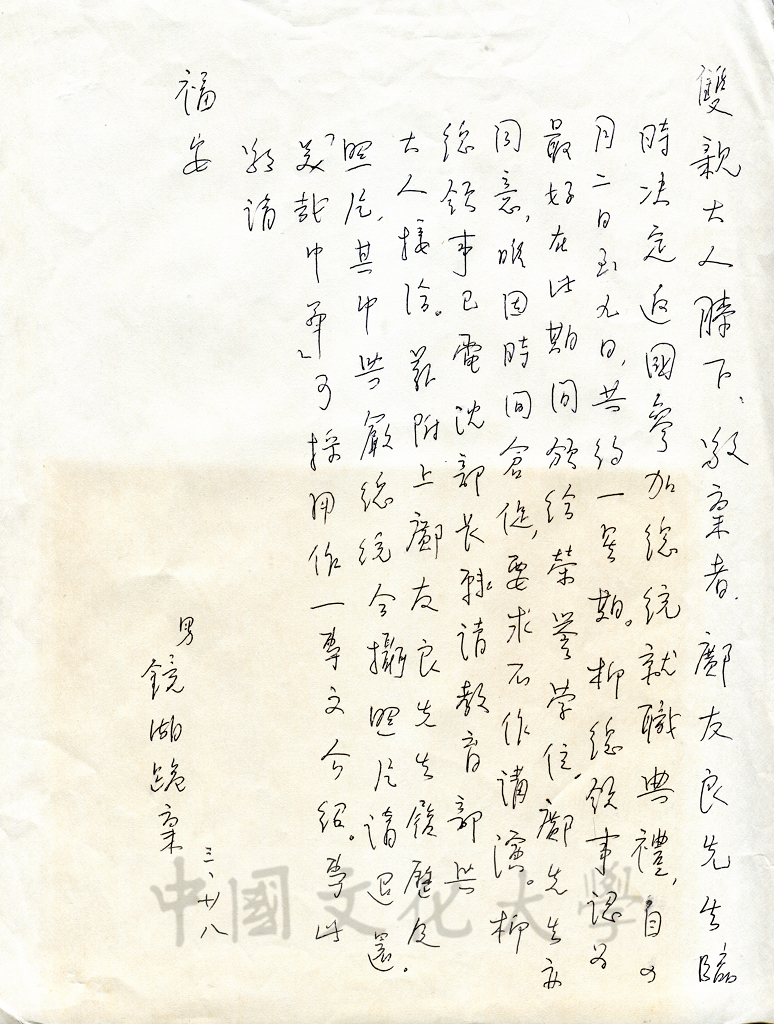 雙親大人膝下、敬稟者．鄺友良先生臨
時決定返國參加總統就職典禮，自四
月二日至九日，共約一星期。柳總領事認為
最好在此期間頒給榮譽學位，鄺先生亦
同意，唯因時間倉促，要求不作講演。柳
總領事已電沈部長轉請教育部與
大人接洽。茲附上鄺友良先生履歷及
照片，其中與嚴總統合攝照片請退還．
「美哉中華」可採用作一專文介紹。專此
敬請
福安
男
鏡湖跪稟
三、廿八
中國文化大學